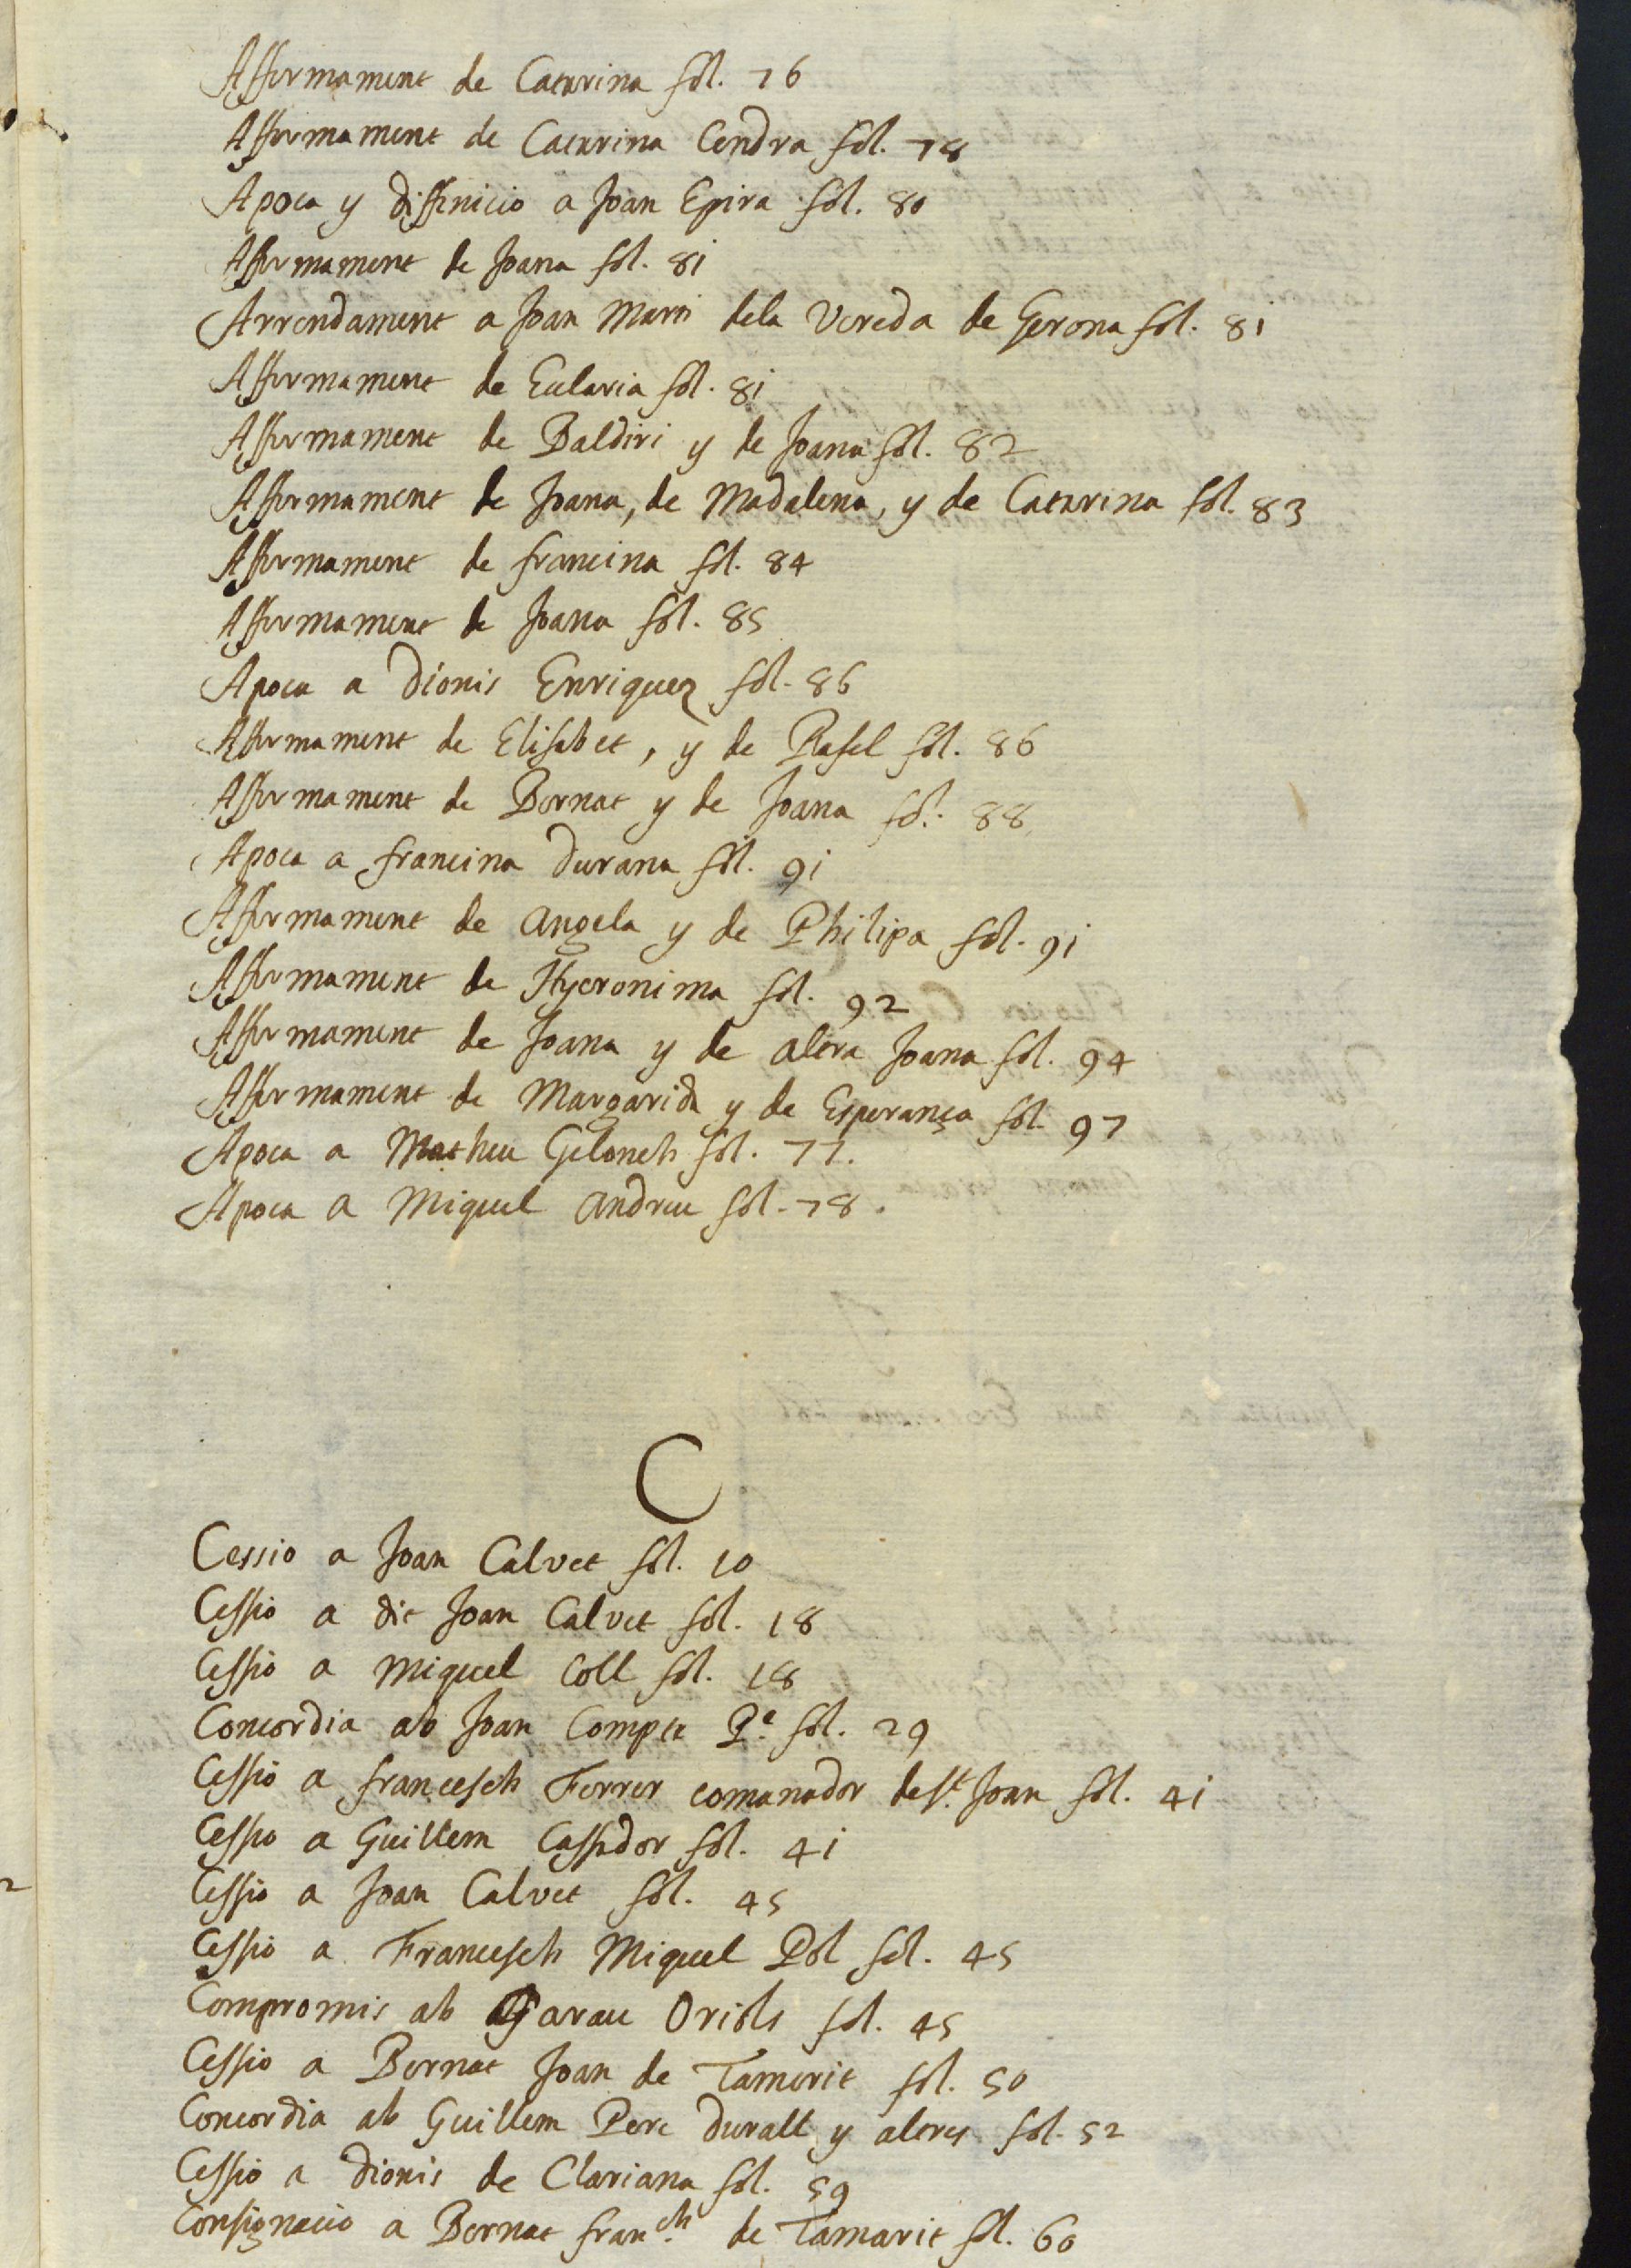 Affermament de Caterina fol. 76
Affermament de Caterina Cendra fol. 78
Apoca y diffinicio a Joan Epira fol. 80
Affermament de Joana fol. 81
Arrendament a Joan Marti dela Vereda de Gerona fol. 81
Affermament de Eularia fol. 81
Affermament de Baldiri y de Joana fol. 82
Affermament de Joana, de Madalena, y de Caterina fol. 83
Affermament de francina fol. 84
Affermament de Joana fol. 85
Apoca a Dionis Enriquez fol. 86
Affermament de Elisabet, y de Rafel fol. 86
Affermament de Bernat y de Joana fol. 88
Apoca a francina Durana fol. 91
Affermament de Angela y de Philipa fol. 91
Affermament de Hyeronima fol. 92
Affermament de Joana y de altra Joana fol. 94
Affermament de Margarida y de Esperança fol. 97
Apoca a Matheu Gelonch fol. 77.
Apoca a Miquel Andreu fol. 78.
C
Cessio a Joan Calvet fol. 10
Cessio a dit Joan Calvet fol. 18
Cessio a Miquel Coll fol. 18
Concordia ab Joan Compte P.e fol. 29
Cessio a francesch Ferrer comanador de St. Joan fol. 41
Cessio a Guillem Cassador fol. 41
Cessio a Joan Calvet fol. 45
Cessio a Francesch Miquel Pol fol. 45
Compromis ab Garau Oriols fol. 45
Cessio a Bernat Joan de Tamerit fol. 50
Concordia ab Guillem Pere Durall y altres fol. 52
Cessio a Dionis de Clariana fol. 59
Consignacio a Bernat fran.ch de Tamarit fol. 60